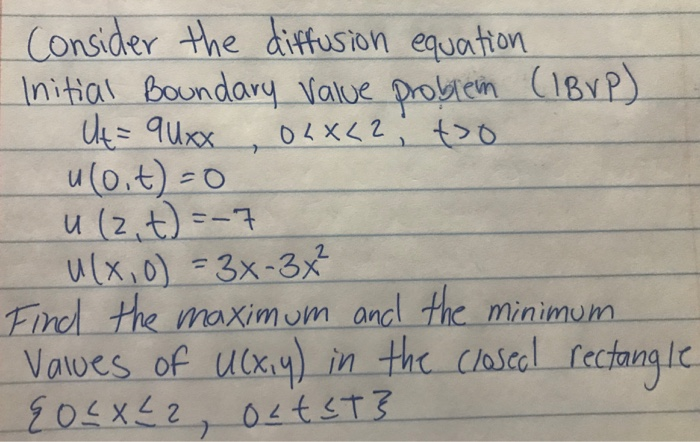 Consider the diffusion equation
Initial Boundary Value problem (IBVP)
Ut = 9Uxx , 0<x<2, t>0
u(0,t) = 0
u(2,t) = -7
u(x,0) = 3x-3x²
Find the maximum and the minimum
Values of u(x,y) in the closed rectangle
{0≤x≤2, 0≤t≤T}